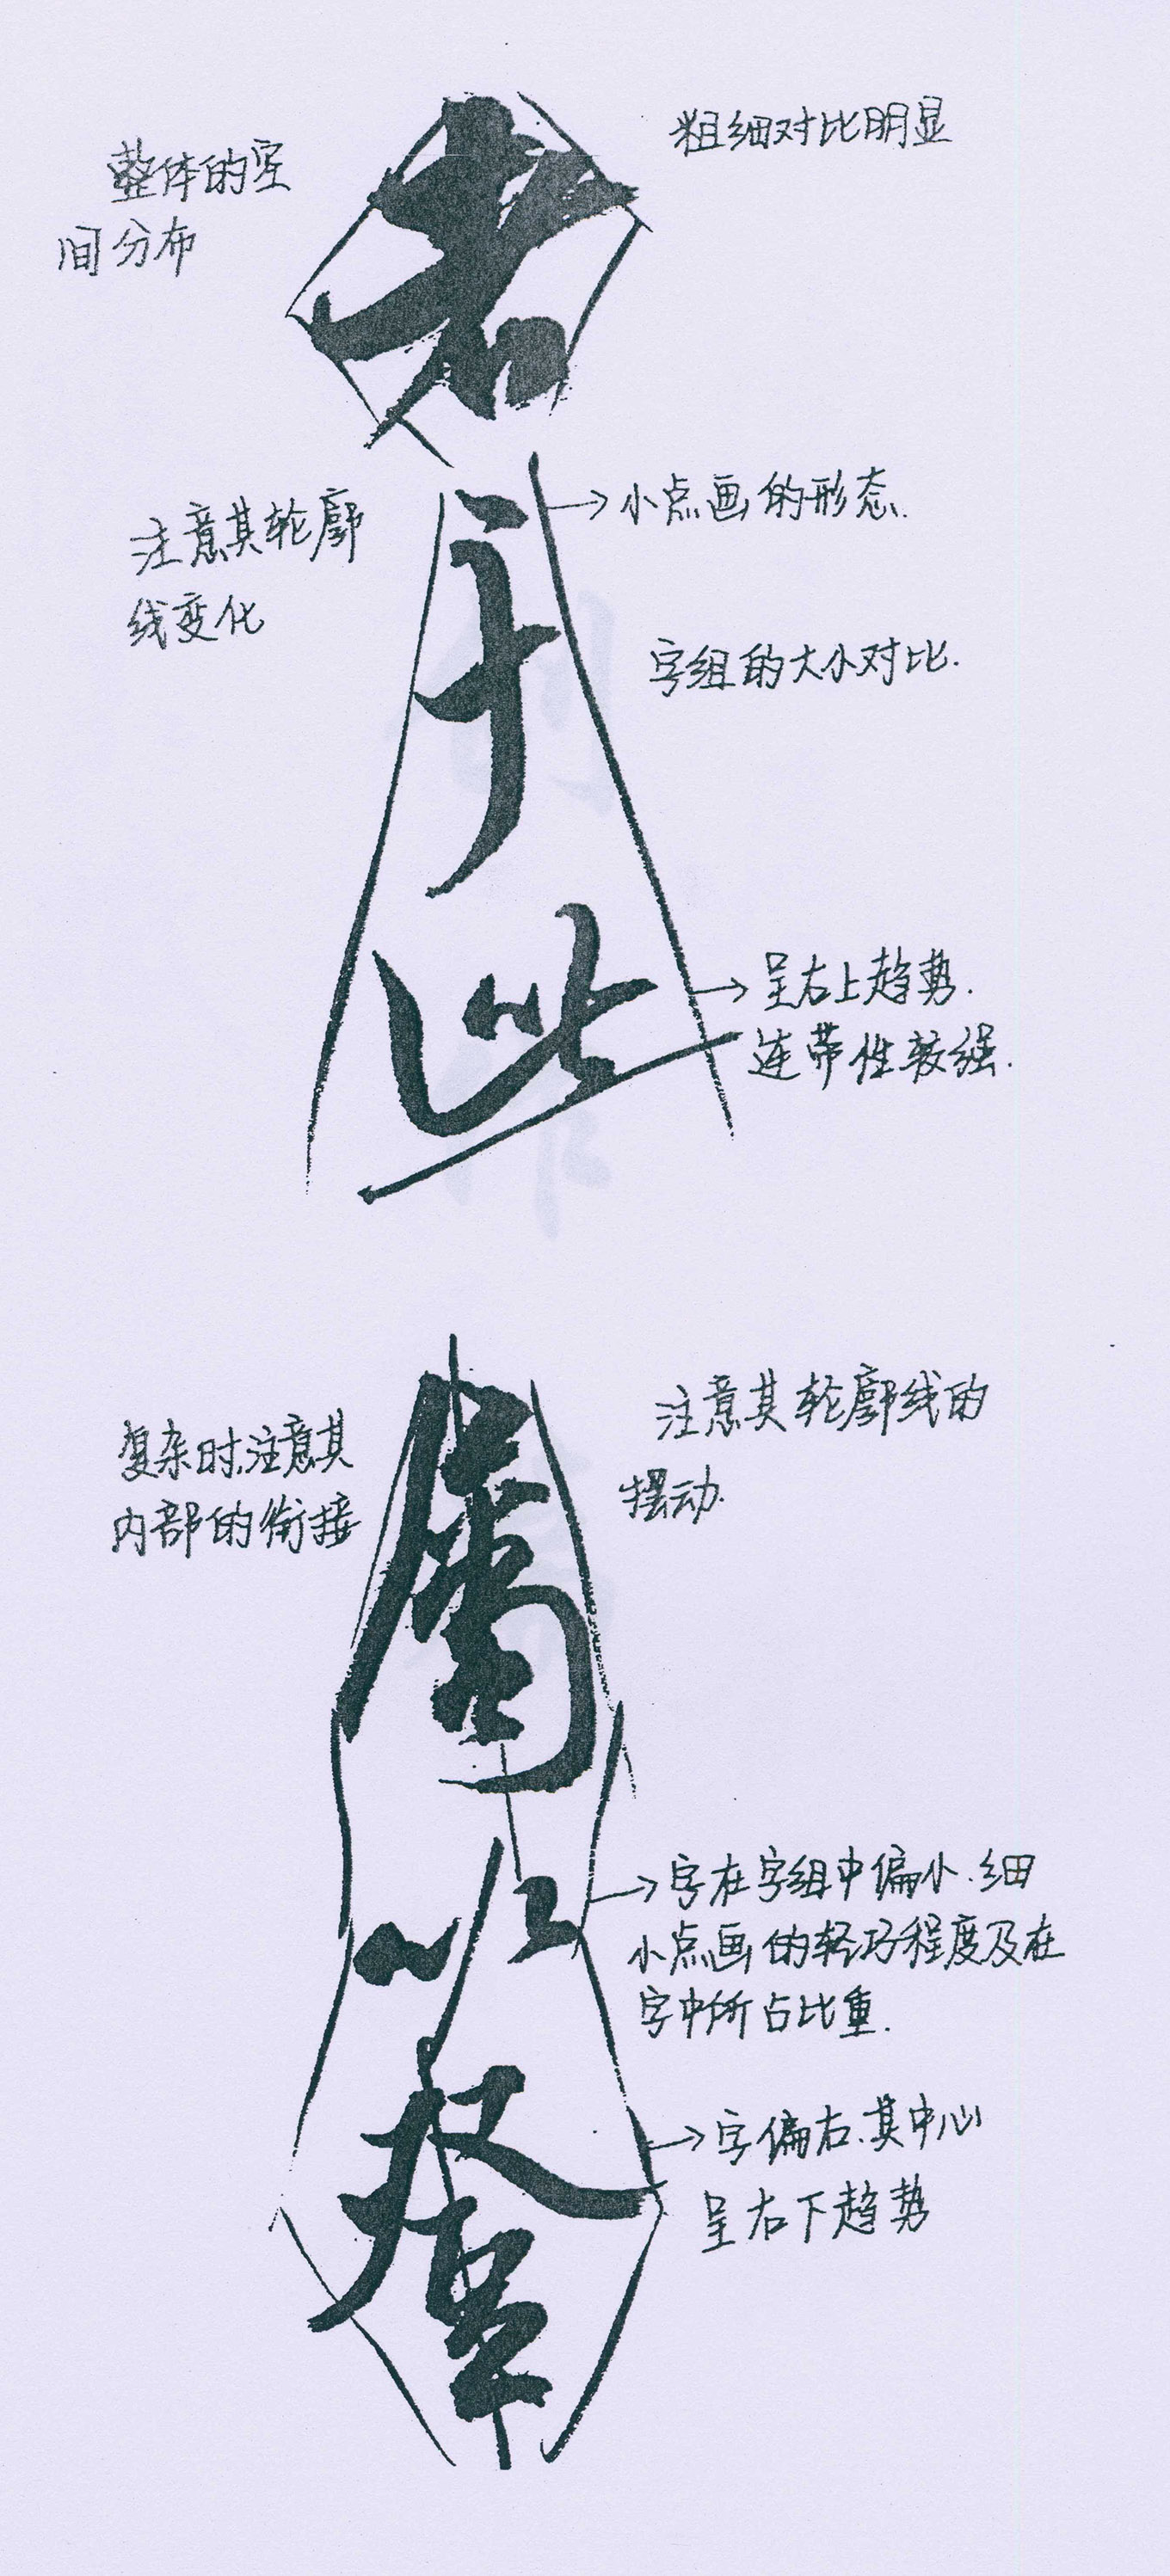 整体的空
间分布
粗细对比明显
若
注意其轮廓
线变化
小点画的形态.
于
字组的大小对比.
此
呈右上趋势.
连带性较强.
复杂时,注意其
内部的衔接
注意其轮廓线的
摆动.
属
以
字在字组中偏小.细
小点画的轻巧程度及在
字中所占比重.
字偏右.其中心
呈右下趋势